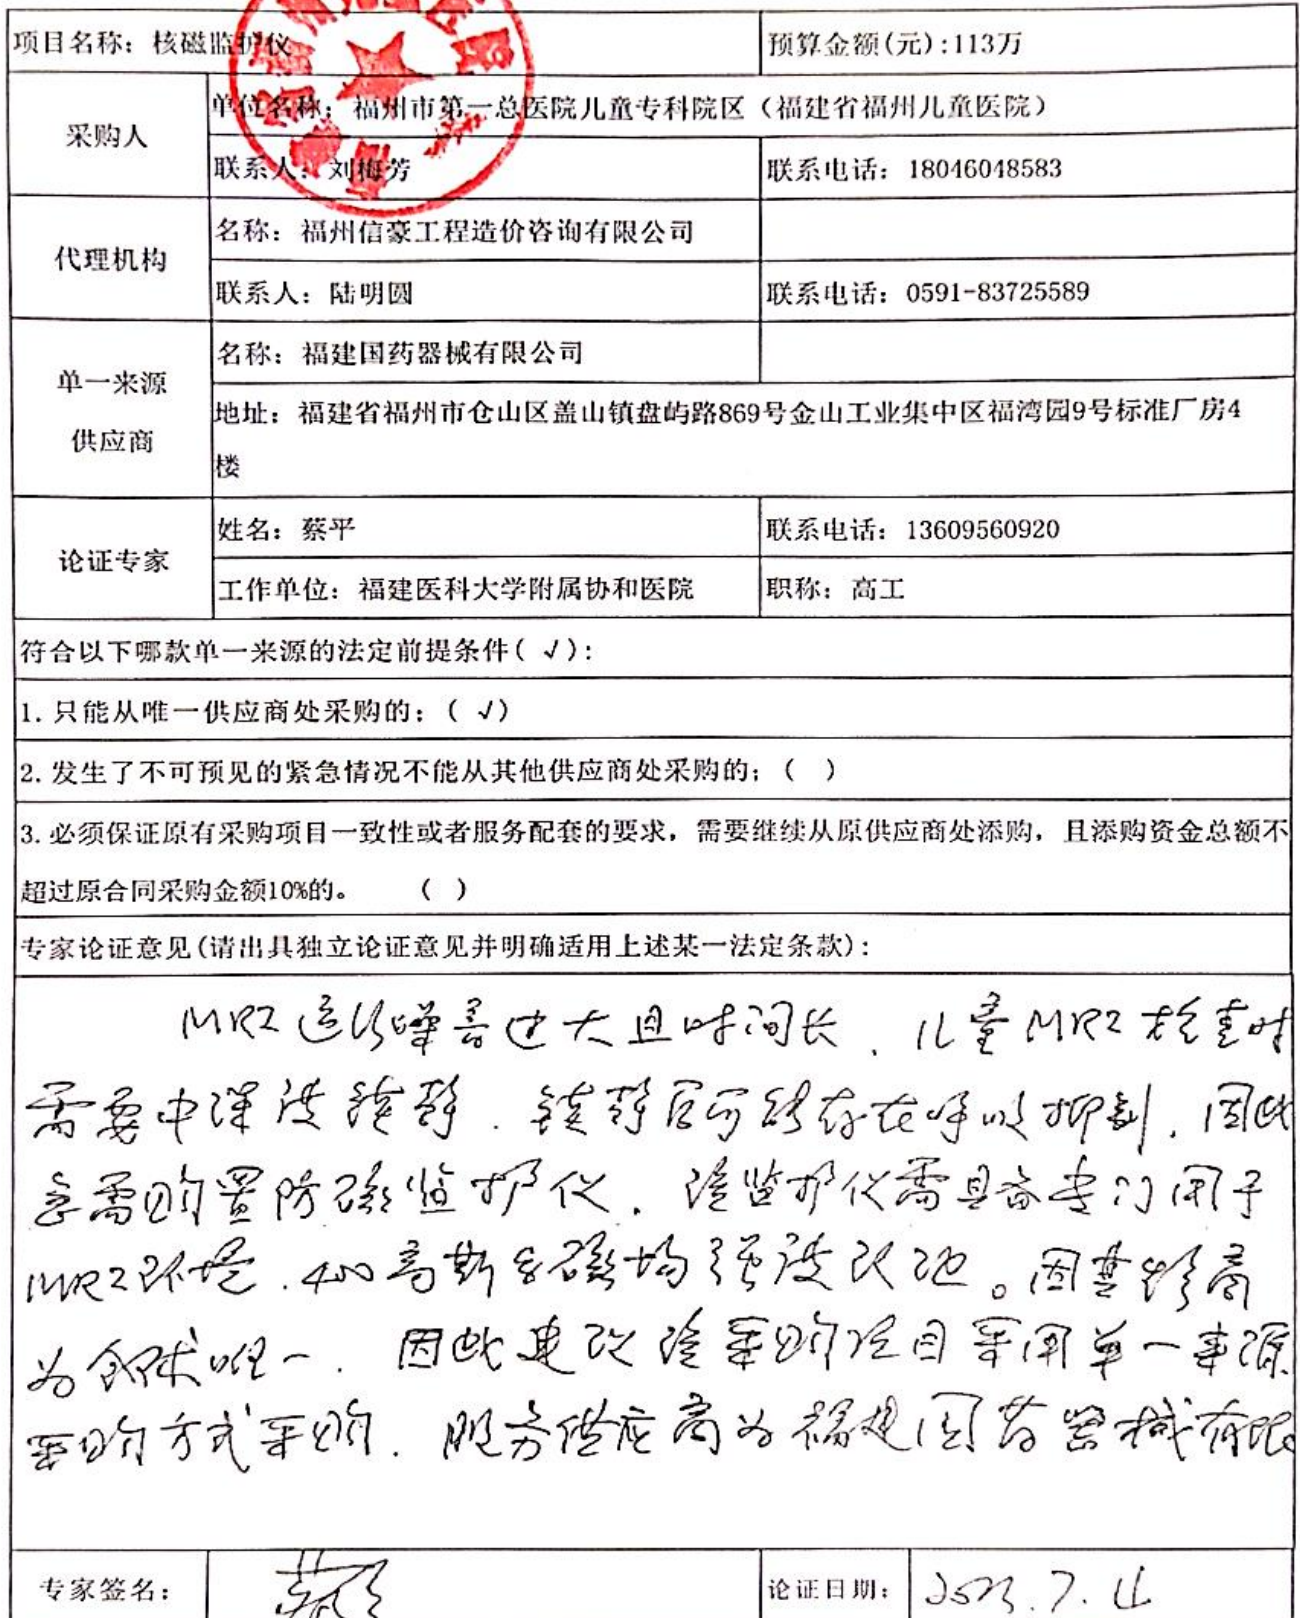 项目名称：核磁监护仪 预算金额(元):113万
采购人
单位名称：福州市第一总医院儿童专科院区（福建省福州儿童医院）
联系人：刘梅芳 联系电话：18046048583
代理机构
名称：福州信豪工程造价咨询有限公司
联系人：陆明圆 联系电话：0591-83725589
单一来源
供应商
名称：福建国药器械有限公司
地址：福建省福州市仓山区盖山镇盘屿路869号金山工业集中区福湾园9号标准厂房4
楼
论证专家
姓名：蔡平 联系电话：13609560920
工作单位：福建医科大学附属协和医院 职称：高工
符合以下哪款单一来源的法定前提条件( √)：
1.只能从唯一供应商处采购的；( √)
2.发生了不可预见的紧急情况不能从其他供应商处采购的；( )
3.必须保证原有采购项目一致性或者服务配套的要求，需要继续从原供应商处添购，且添购资金总额不
超过原合同采购金额10%的。 ( )
专家论证意见(请出具独立论证意见并明确适用上述某一法定条款)：
MRI 噪音过大且时间长，儿童MRI检查时
需要中深度镇静，镇静后可能存在呼吸抑制，因此
需购置防磁监护仪，该监护仪需具备专门用于
MRI环境，400高斯 磁场强度 。因其
为 唯一，因此建议该采购项目采用单一来源
采购方式采购，服务供应商为福建国药器械有限
专家签名： 论证日期： 2023.7.